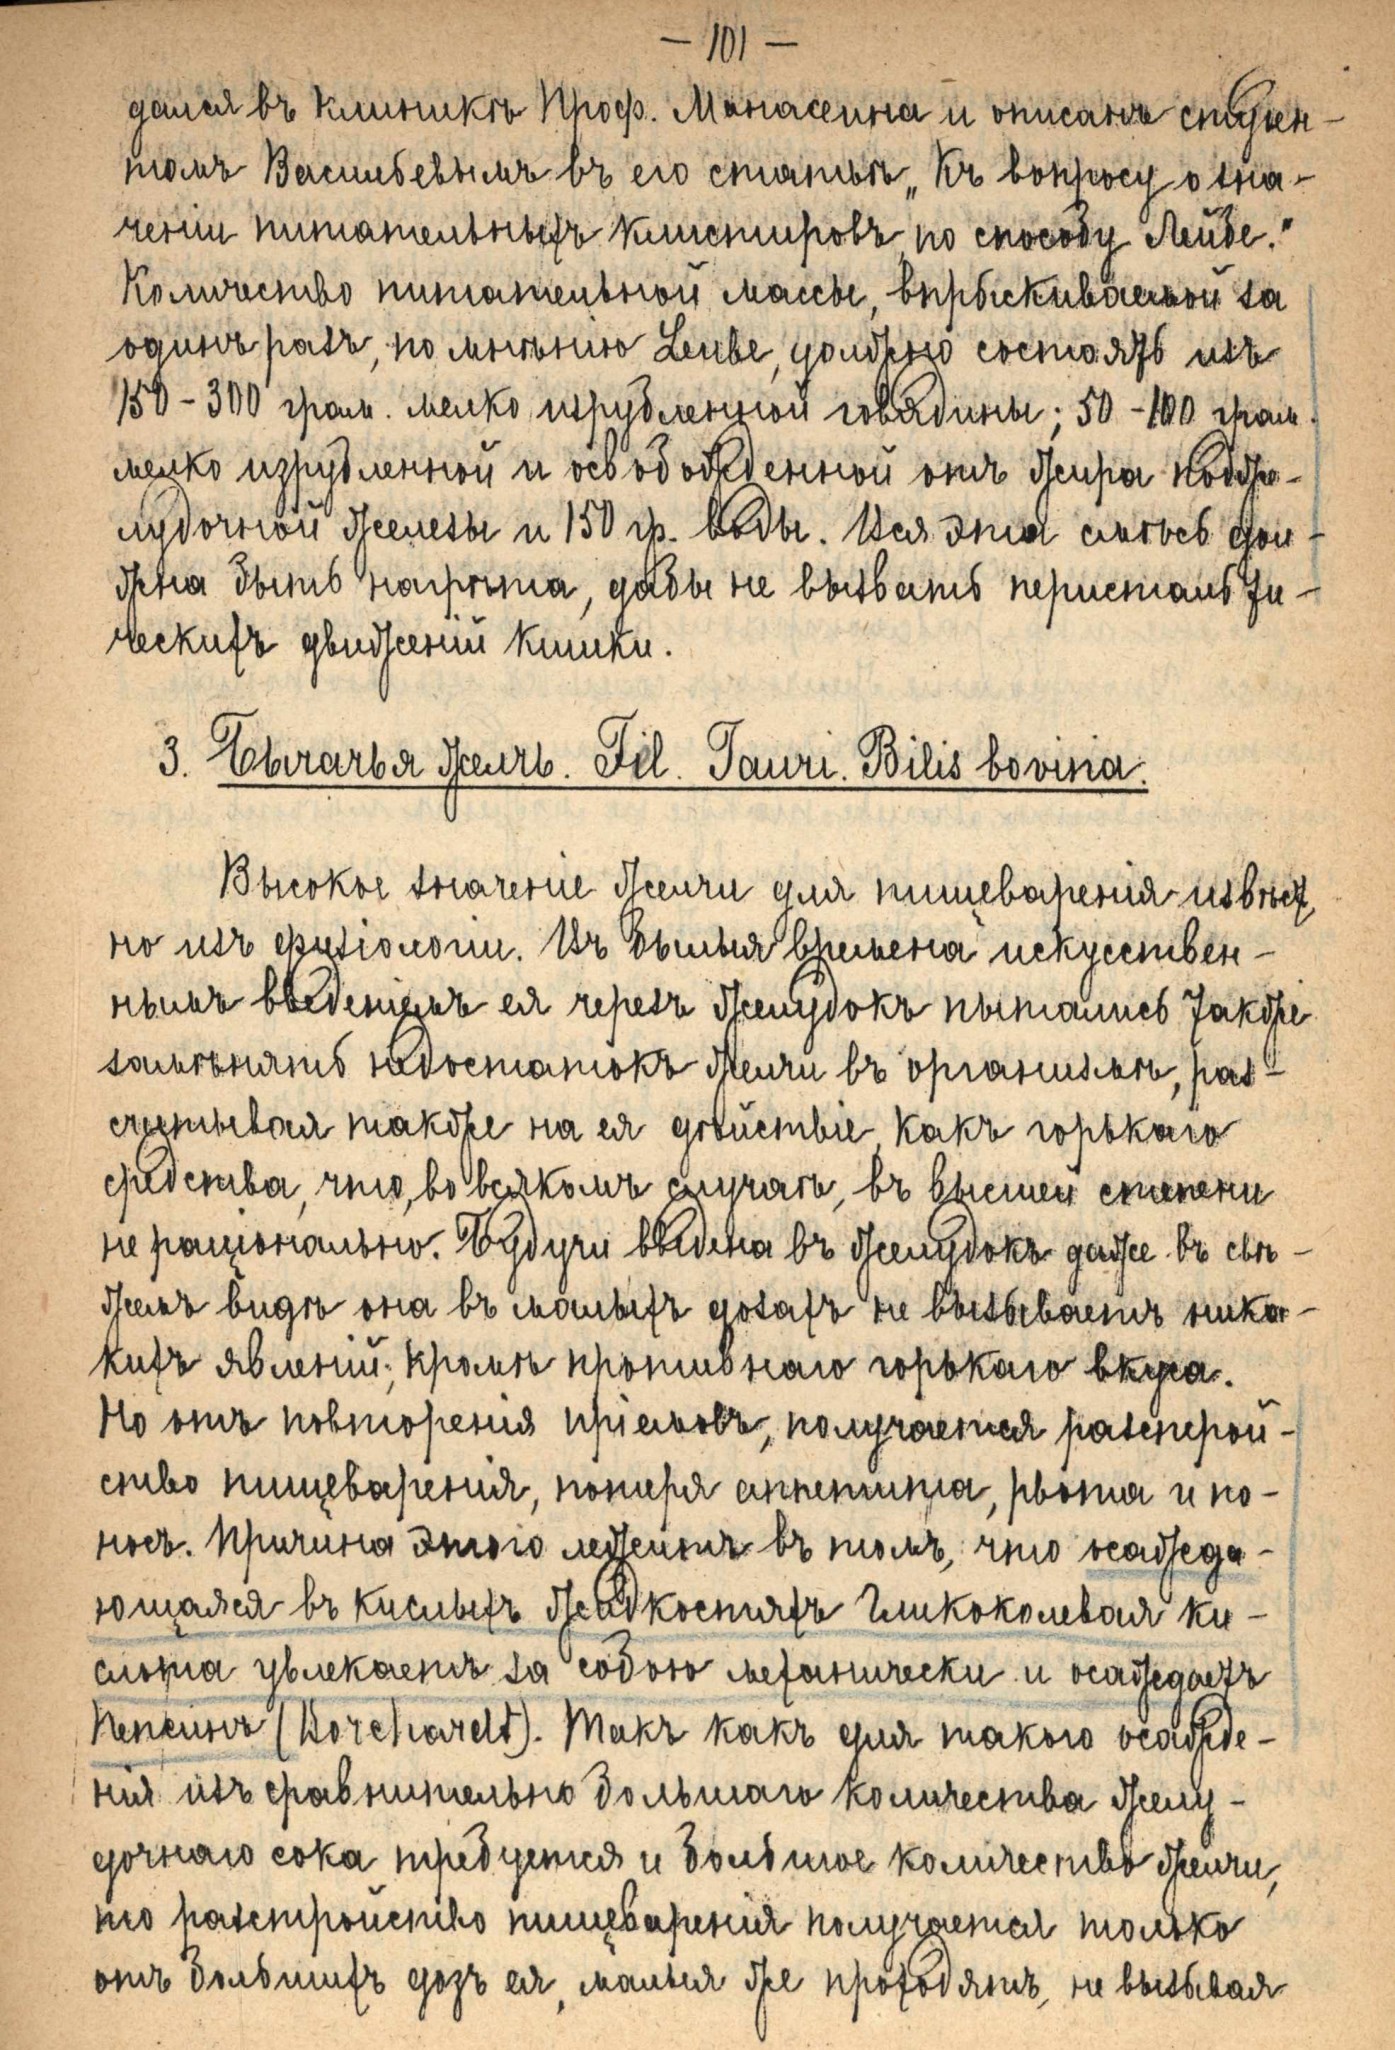 — 101 —
дался въ клиникѣ Проф. Манасеина и описанъ студен-
томъ Васильевымъ въ его статьѣ „Къ вопросу о зна-
ченіи питательныхъ клистировъ по способу Лейбе."
Количество питательной массы, впрыскиваемой за
одинъ разъ, по мнѣнію Leube, должно состоять изъ
150-300 грам. мелко изрубленной говядины; 50-100 грам.
мелко изрубленной и освобожденной отъ жира поджe-
лудочной железы и 150 гр. воды. Вся эта смѣсь дол-
жна быть нагрѣта, дабы не вызвать перисталь ти-
ческихъ движеній кишки.
3. Бычачья желчь. Fel. Tauri. Bilis bovina.
Высокое значеніе желчи для пищеваренія извѣст-
но изъ физіологіи. Въ былыя времена искусствен-
нымъ введеніемъ ея черезъ желудокъ пытались также
замѣнять недостатокъ желчи въ организмѣ, раз-
считывая также на ея дѣйствіе, какъ горькаго
средства, что, во всякомъ случаѣ, въ высшей степени
не раціонально. Будучи введена въ желудокъ даже въ свѣ-
жемъ видѣ она въ малыхъ дозахъ не вызываетъ ника-
кихъ явленій, кромѣ противнаго горькаго вкуса.
Но отъ повторенія пріемовъ, получается разстрой-
ство пищеваренія, потеря аппетита, рвота и по-
носъ. Причина этого лежитъ въ томъ, что осажда-
ющаяся въ кислыхъ жидкостяхъ Гликоколевая ки-
слота увлекаетъ за собою механически и осаждаетъ
Пепсинъ (Borchardt). Такъ какъ для такого осажде-
нія изъ сравнительно большаго количества желу-
дочнаго сока требуется и большое количество желчи,
то разстройство пищеваренія получается только
отъ большихъ дозъ ея, малыя же проходятъ, не вызывая